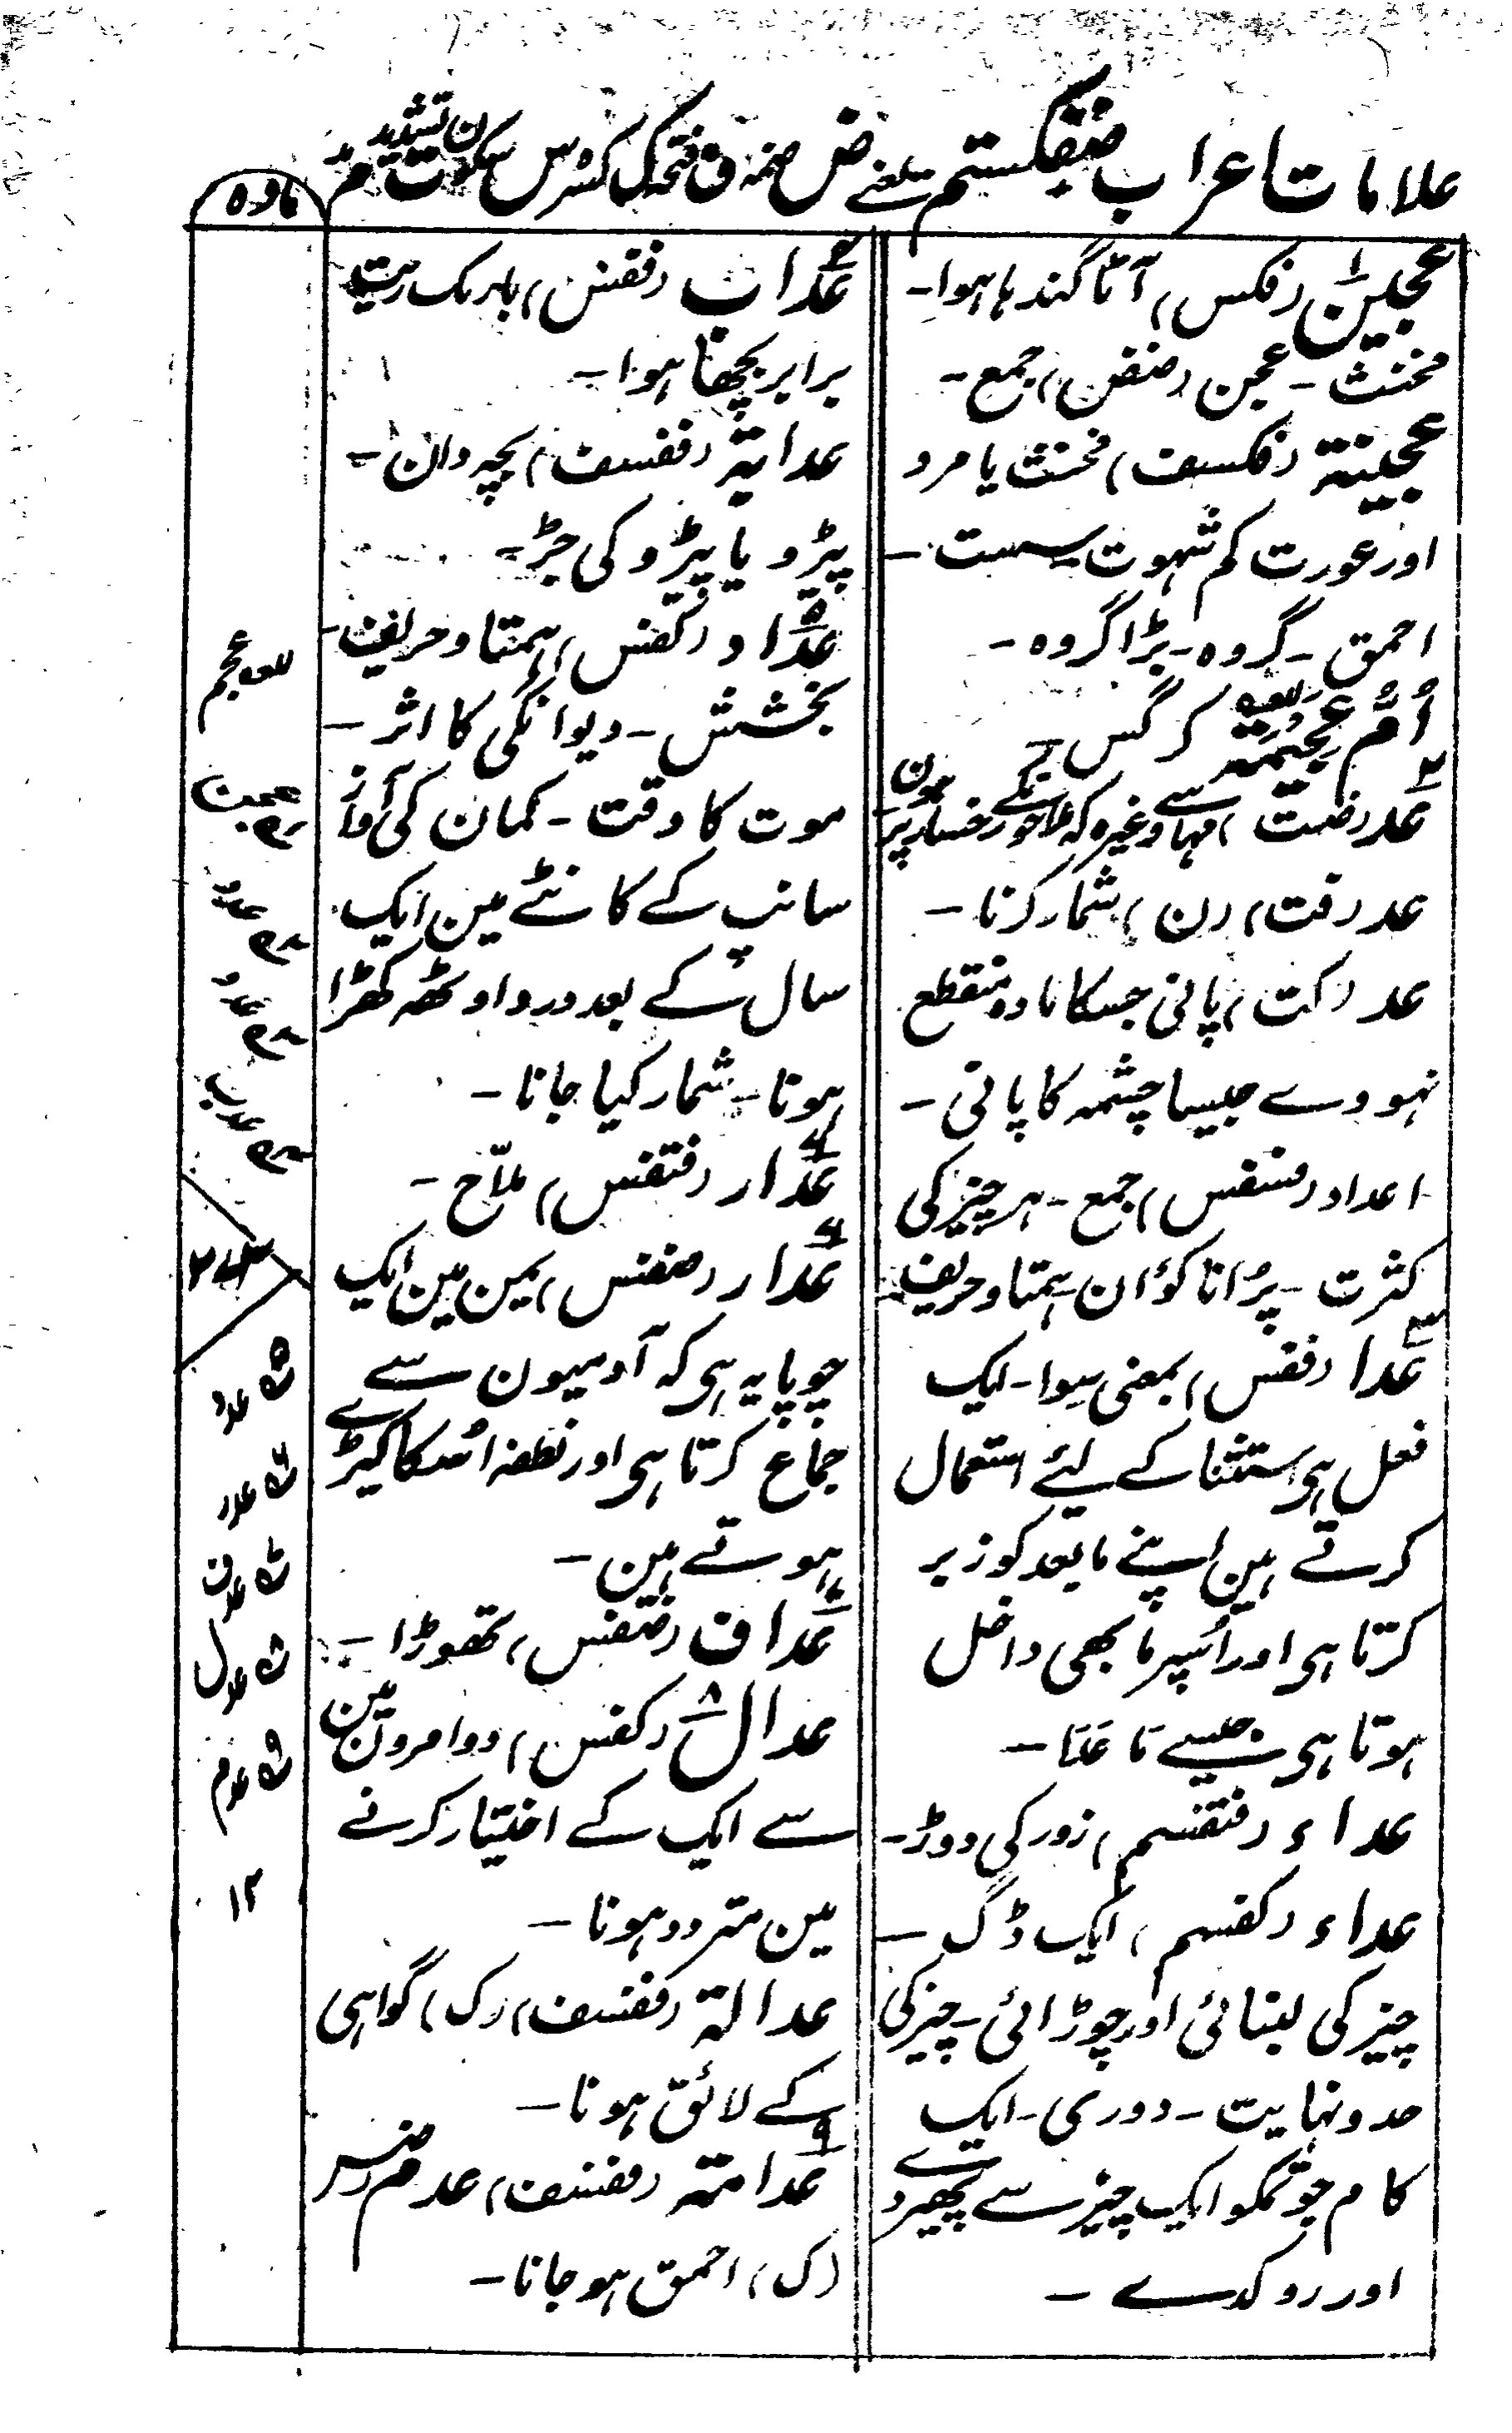 علامات اعراب ضفکستم یعنے ض ضمہ ف فتحہ ک کسرہ س سکون ت تشدید م مد
مادہ
عجین (فکس) آٹا گندہا ہوا۔
مخنث۔ عجن (ضفن) جمع۔
عجینة (فکسف) مخنث یا مرد
اور عورت کم شہوت سست۔
احمق۔ گروہ۔ بڑا گروہ۔
اُمّ عجیمة کرگس۔
عد (ضت) مہاسے وغیرہ کہ رخسار پر ہون
عد (فت) (ن) شمار کرنا۔
عد (کت) پانی جسکا مادہ منقطع
نہووے جیسا چشمہ کا پانی۔
اعداد (فسفس) جمع۔ ہر چیز کی
کثرت۔ پرُانا کوُان ہمتا و حریف
عدا (ففس) بمعنی سِوا۔ ایک
فعل ہی استثنا کے لیئے استعمال
کرتے ہین اپنے مابعد کو زبر
کرتا ہی اور اُسپر ما بھی داخل
ہوتا ہی جیسے مَا عَدَا۔
عداء (فتفسم) زور کی دوڑ۔
عداء (کفسم) ایک ڈگ۔
چیز کی لنبائی اور چوڑائی۔ چیز کی
حد و نہایت۔ دوری۔ ایک
کام جو تمکو ایک چیز سے پھیردے
اور روکدے۔
عداب (ففس) باریک ریت
برابر بچھا ہوا۔
عدابة (ففسف) بچہ دان۔
پیڑو یا پیڑو کی جڑ۔
عداد (کفس) ہمتا و حریف۔
بخشش۔ دیوانگی کا اثر۔
موت کا وقت۔ کمان کی آواز
سانپ کے کاٹنے مین ایک
سال کے بعد درد اوٹھہ کھڑا
ہونا۔ شمار کیا جانا۔
عدار (فتفس) ملاّح۔
عدار (ضفس) یمن مین ایک
چوپایہ ہی کہ آدمیون سے
جماع کرتا ہی اور نطفہ اُسکا کیڑے
ہوتے ہین۔
عداف (ضفس) تھوڑا۔
عدال (کفس) دو امرون مین
سے ایک کے اختیار کرنے
مین متردد ہونا۔
عدالة (ففسف) (ک) گواہی
کے لائق ہونا۔
عدامة (ففسف) عدم (ضس)
(ک) احمق ہو جانا۔
عجم
عجن
عد
عدد
عدب
عدد
عدر
عدف
عدل
عدم
۱۲